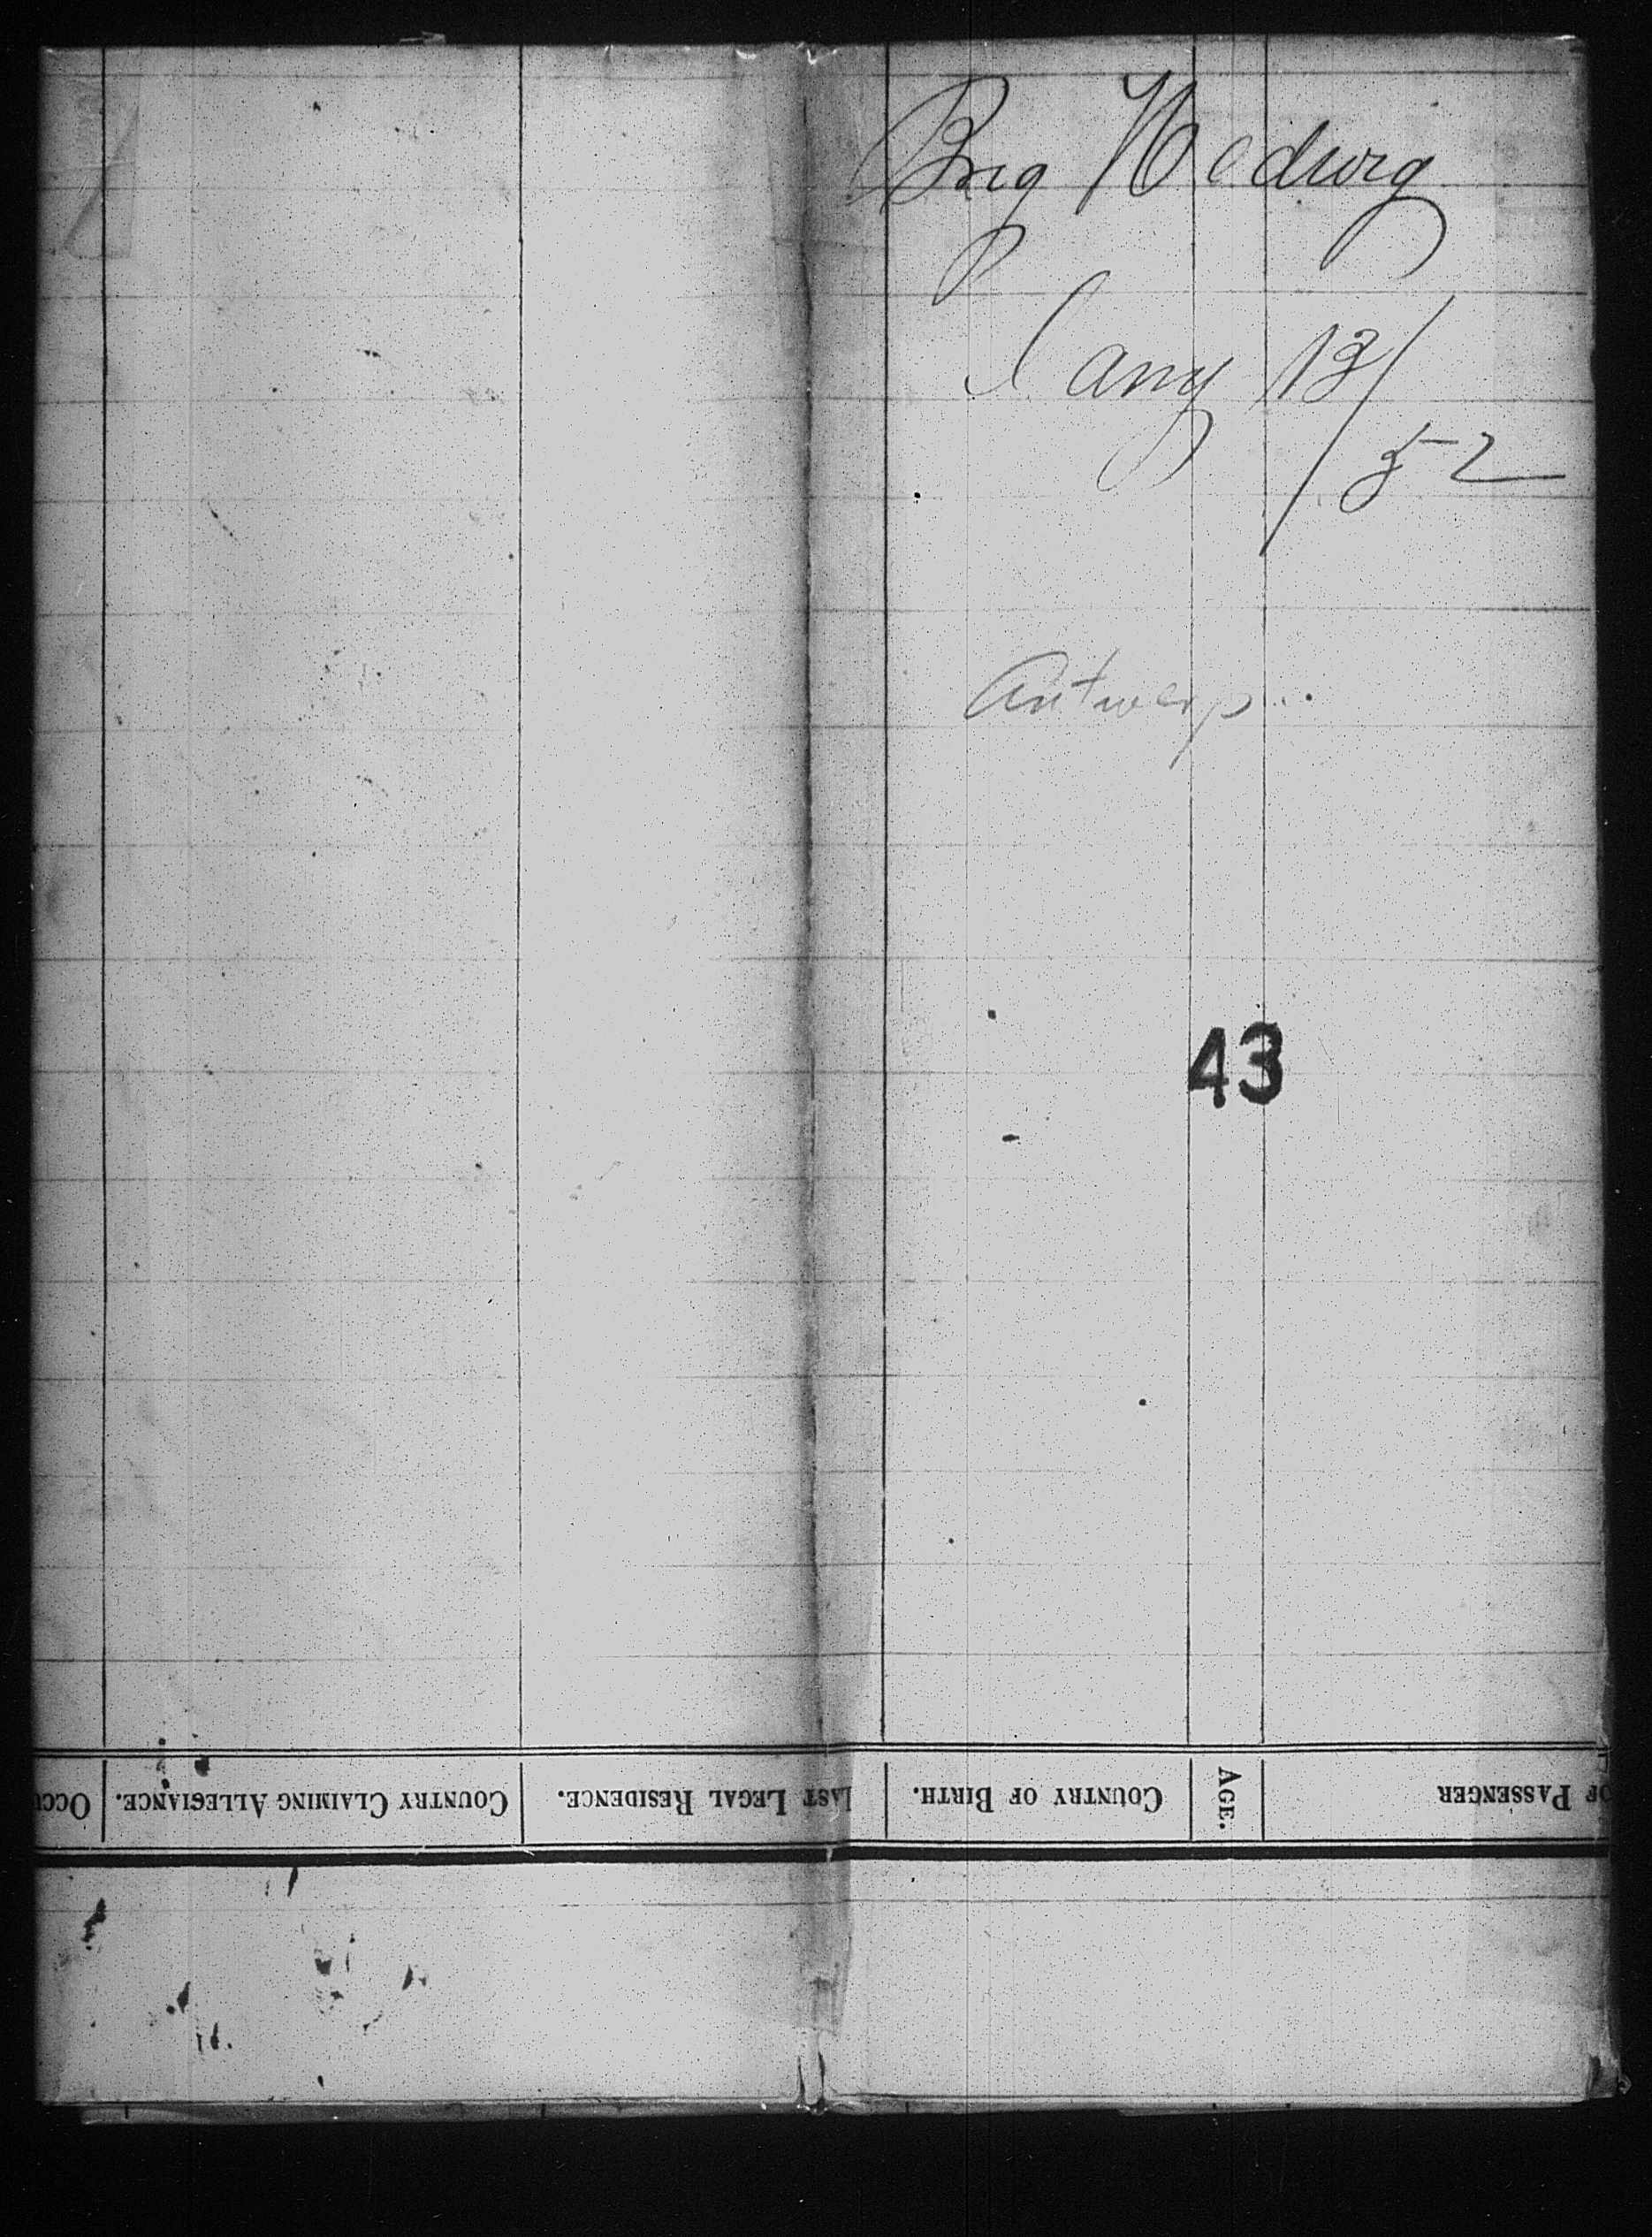 Brig Hedwig
Jany 13/52
Antwerp
43
OF PASSENGER
AGE.
COUNTRY OF BIRTH.
LAST LEGAL RESIDENCE.
COUNTRY CLAIMING ALLEGIANCE.
OCCU